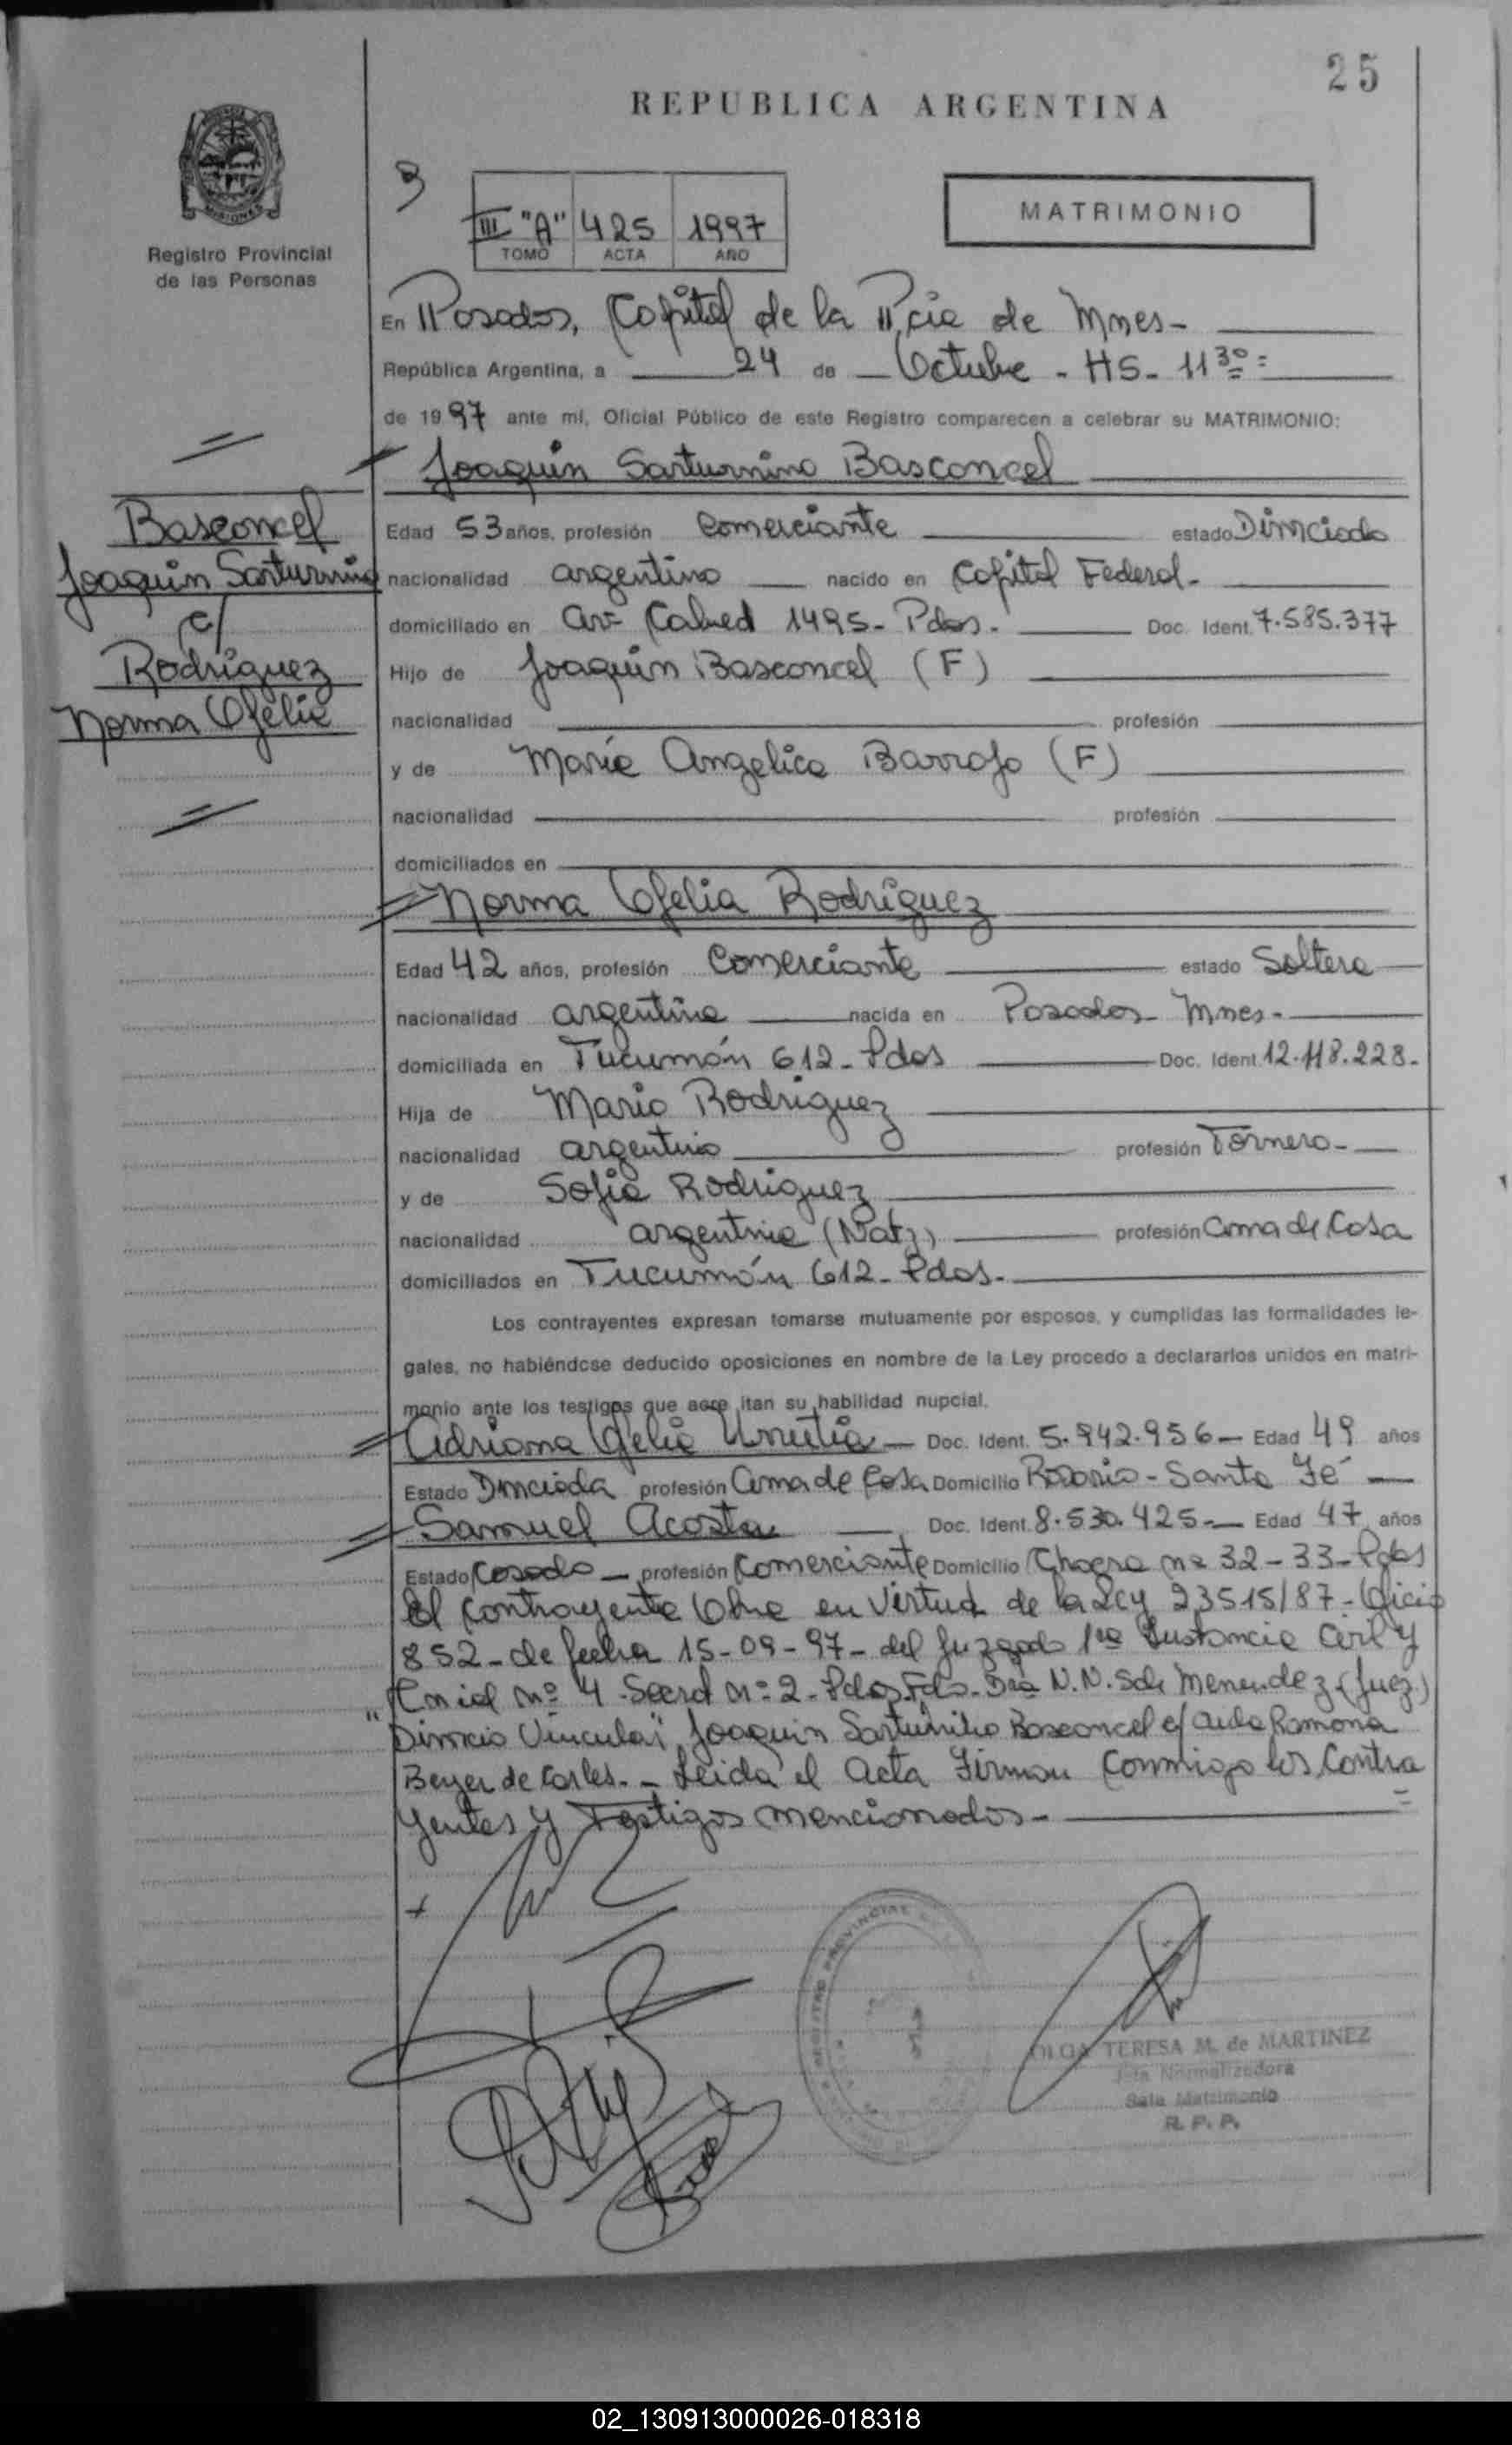 25
REPUBLICA ARGENTINA
Registro Provincial
de las Personas
III "A" 425 1997
TOMO ACTA AÑO
MATRIMONIO
En Posadas, Capital de la Pcia de Mnes-
República Argentina, a 24 de Octubre - HS- 11 30=
de 1997 ante mí, Oficial Público de este Registro comparecen a celebrar su MATRIMONIO:
Joaquin Saturnino Basconcel
Basconcel
Joaquin Saturnino
c/
Rodríguez
Norma Ofelia
Edad 53 años, profesión Comerciante estado Divorciado
nacionalidad argentino nacido en Capital Federal-
domiciliado en Av= Cabred 1495- Pdas- Doc. Ident. 7.585.377
Hijo de Joaquin Basconcel (F)
nacionalidad profesión
y de María Angelica (F)
nacionalidad profesión
domiciliados en
Norma Ofelia Rodríguez
Edad 42 años, profesión Comerciante estado Soltera
nacionalidad argentina nacida en Posadas- Mnes-
domiciliada en Tucumán 612- Pdas Doc. Ident. 12.118.228-
Hija de Mario Rodriguez
nacionalidad argentino profesión Tornero-
y de Sofia Rodriguez
nacionalidad argentina (Natz) profesión Ama de Casa
domiciliados en Tucumán 612- Pdas-
Los contrayentes expresan tomarse mutuamente por esposos, y cumplidas las formalidades le-
gales, no habiéndose deducido oposiciones en nombre de la Ley procedo a declararlos unidos en matri-
monio ante los testigos que acre itan su habilidad nupcial.
Adriana Ofelia Urrutia Doc. Ident. 5.942.956- Edad 49 años
Estado Divorciada profesión Ama de Casa Domicilio Rosario- Santa Fé
Samuel Acosta Doc. Ident. 8.530.425- Edad 47 años
Estado Casado profesión Comerciante Domicilio Chacra nº 32-33- Pdas
El contrayente Obra en virtud de la Ley 23515/87- Oficio
852- de fecha 15-09-97- del Juzgado 1ra Instancia Civil y
Cmcial nº 4- Secret nº 2- Pdas. Fdo- Dra N.N. Sch Menendez (Juez)
"Divorcio Vincular" Joaquin Saturnino Basconcel c/ Aida Ramona
Beyer de Carles.- Leída el Acta Firman Conmigo los Contra
yentes y Testigos mencionados-
REGISTRO PROVINCIAL
OLGA TERESA M. de MARTINEZ
Jefa Normalizadora
Sala Matrimonio
R. P. P.
02_130913000026-018318